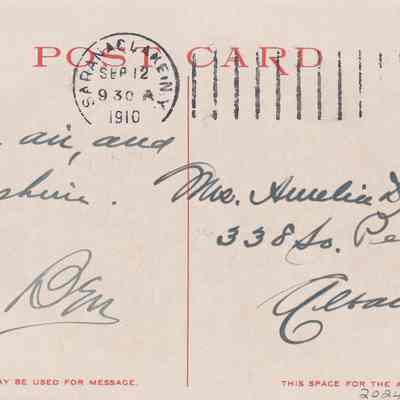 POST CARD
SARANAC LAKE N.Y.
SEP 12
9 30 A
1910
air, and
shine.
Ben
Mrs. Amelia D
338 So. Pe
Alba
AY BE USED FOR MESSAGE.
THIS SPACE FOR THE A
2024